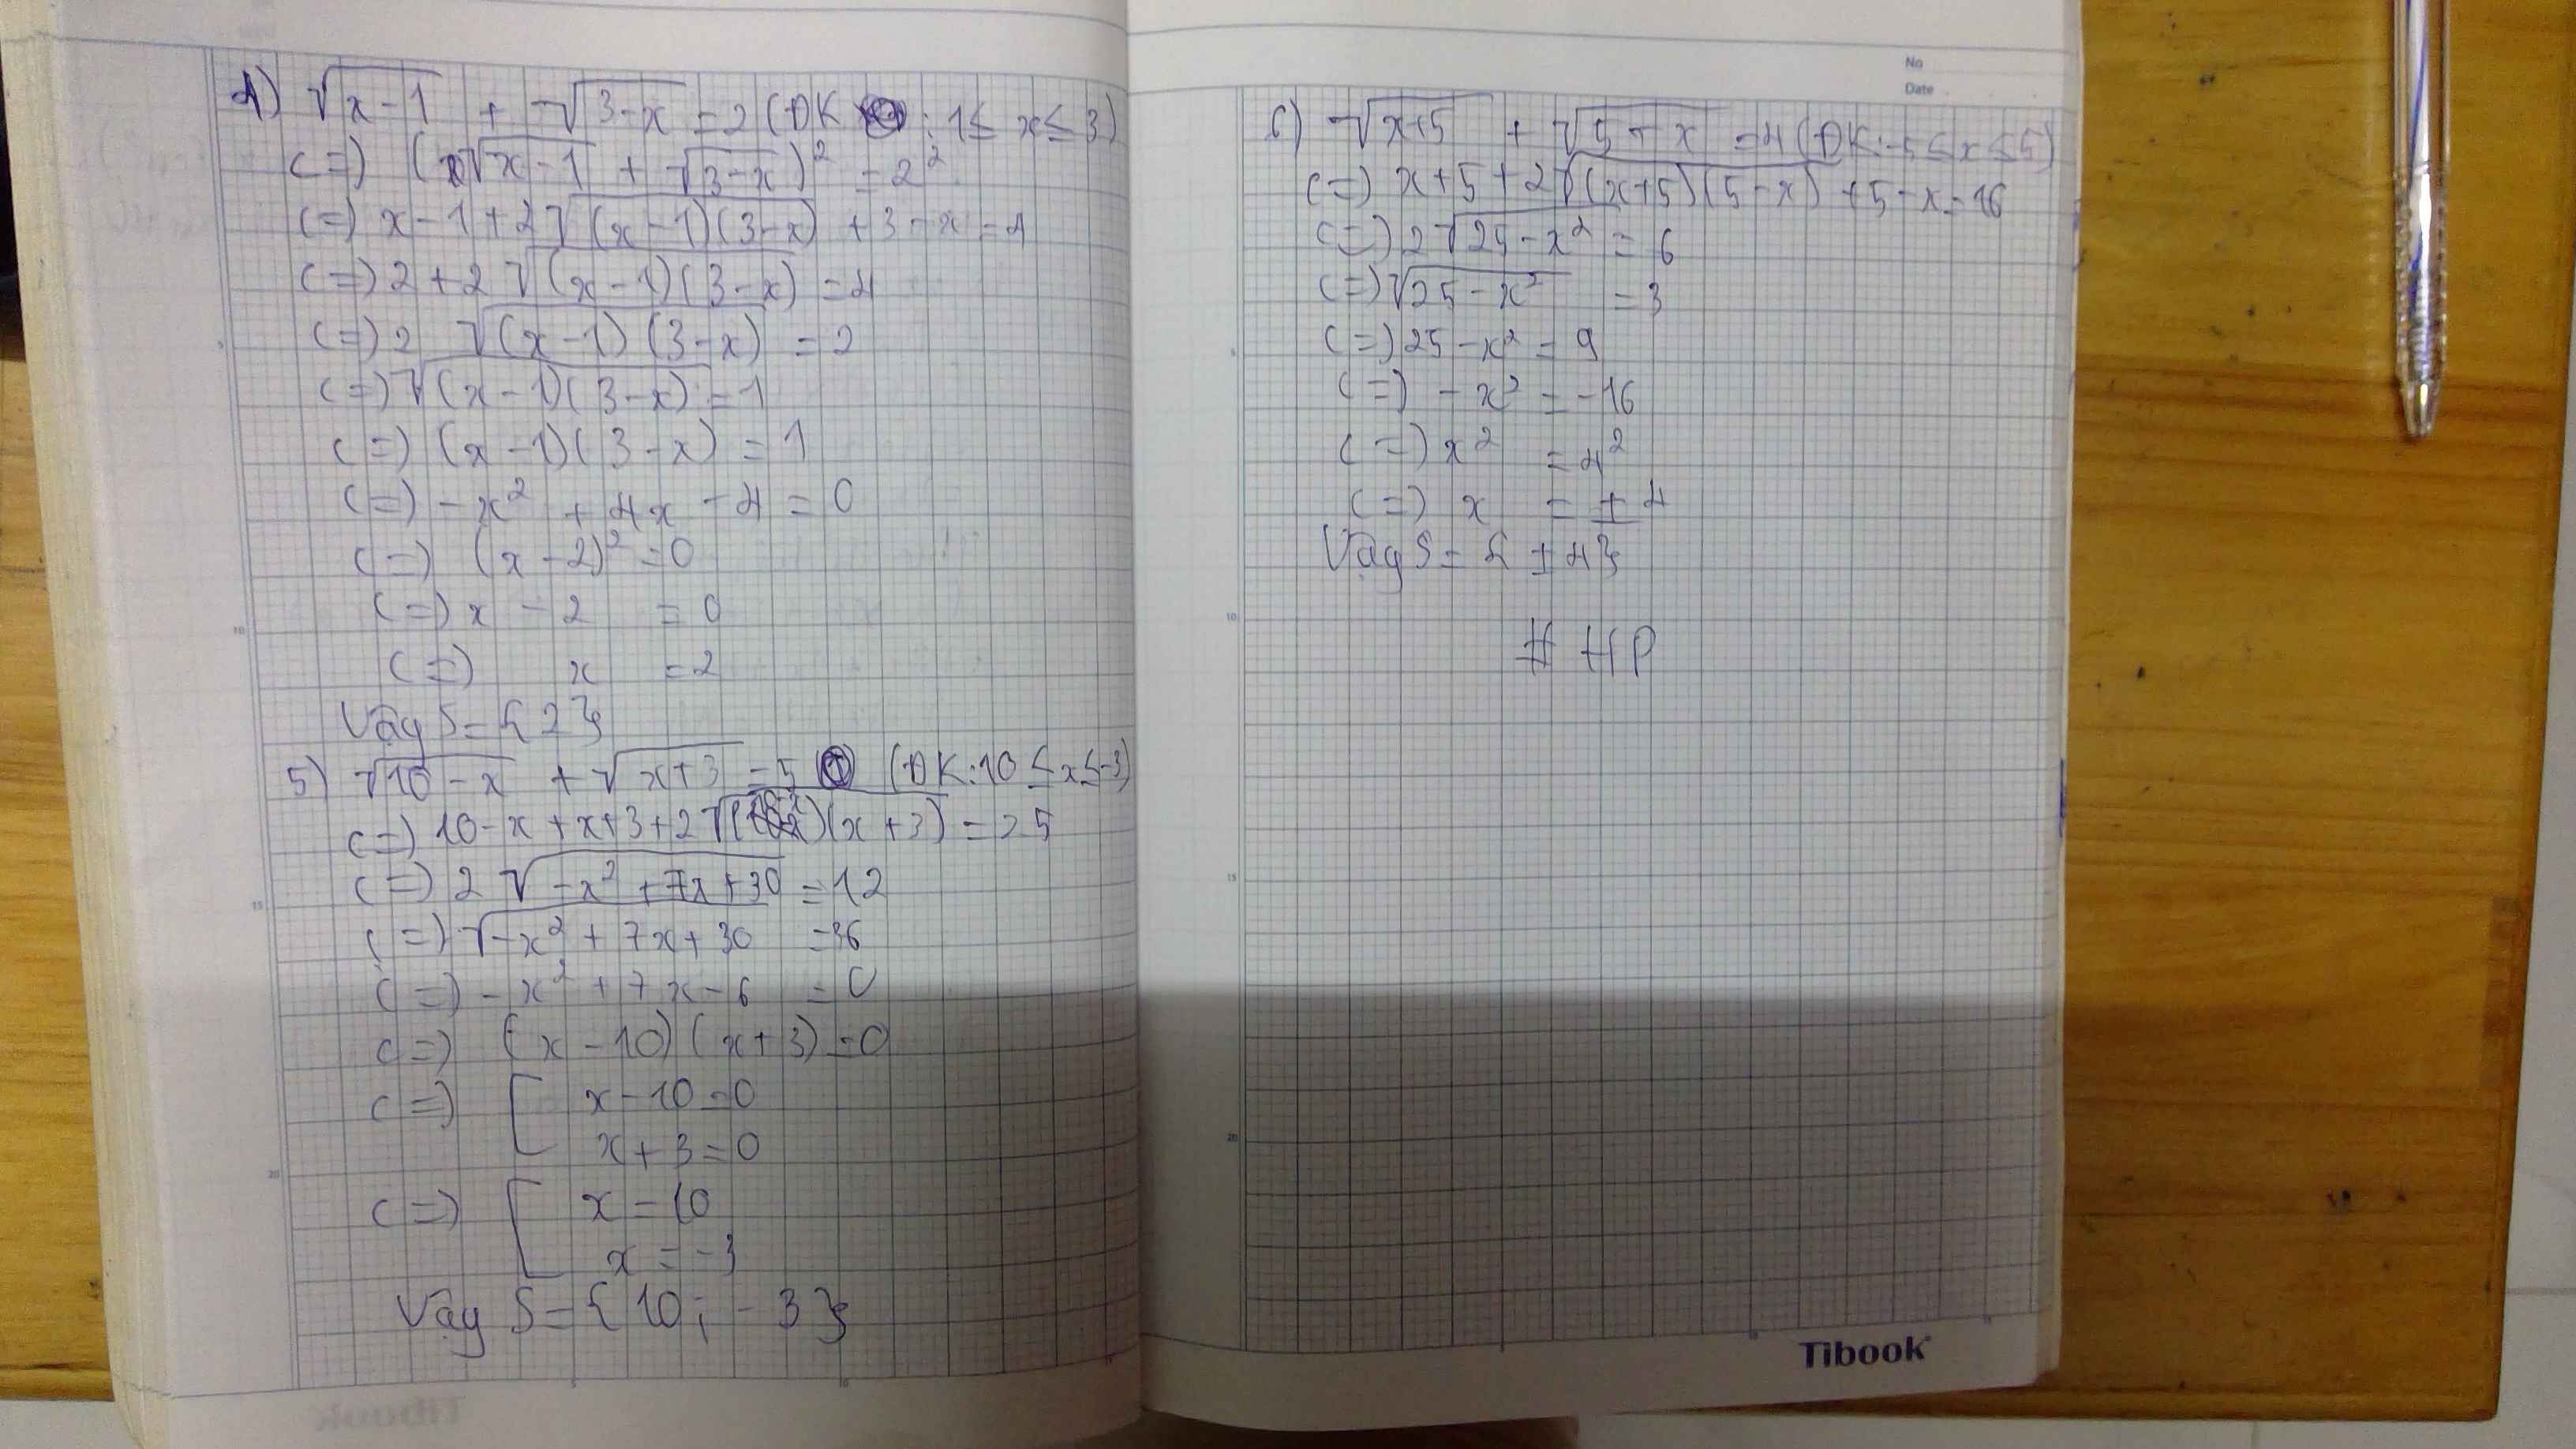 4) √(x-1) + √(3-x) = 2 (ĐK : 1 ≤ x ≤ 3)
(=) (√(x-1) + √(3-x))² = 2²
(=) x - 1 + 2√((x-1)(3-x)) + 3 - x = 4
(=) 2 + 2√((x-1)(3-x)) = 4
(=) 2√((x-1)(3-x)) = 2
(=) √((x-1)(3-x)) = 1
(=) (x-1)(3-x) = 1
(=) -x² + 4x - 4 = 0
(=) (x-2)² = 0
(=) x - 2 = 0
(=) x = 2
Vậy S = {2}
5) √(10-x) + √(x+3) = 5 (ĐK: 10 ≤ x ≤ -3)
(=) 10-x + x+3 + 2√((10-x)(x+3)) = 25
(=) 2√(-x² + 7x + 30) = 12
(=) √(-x² + 7x + 30) = 36
(=) -x² + 7x - 6 = 0
(=) (x - 10)(x + 3) = 0
(=) [ x - 10 = 0
x + 3 = 0
(=) [ x = 10
x = -3
Vậy S = {10; -3}
No
Date
6) √(x+5) + √(5-x) = 4 (ĐK: -5 ≤ x ≤ 5)
(=) x + 5 + 2√((x+5)(5-x)) + 5 - x = 16
(=) 2√(25-x²) = 6
(=) √(25-x²) = 3
(=) 25 - x² = 9
(=) -x² = -16
(=) x² = 4²
(=) x = ±4
Vậy S = {±4}
# HP
5
10
15
20
Tibook